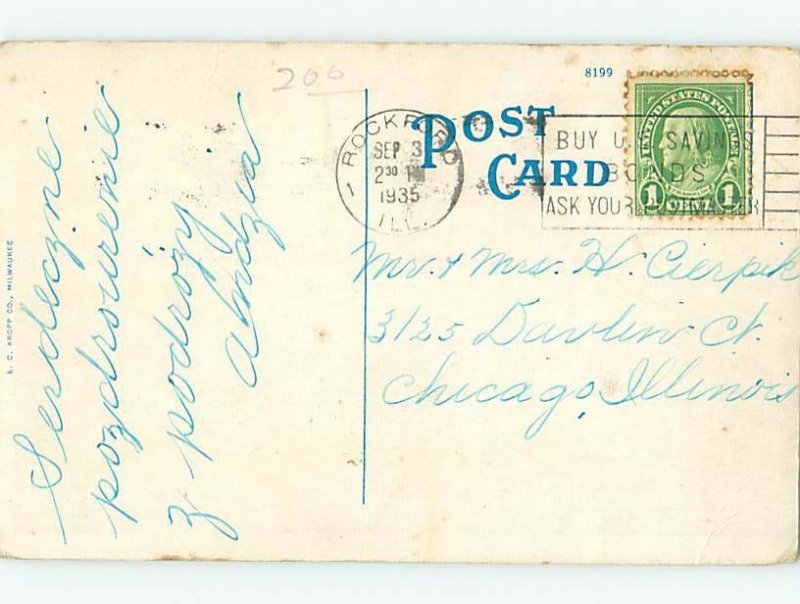 200
8199
POST
CARD
ROCKFORD
SEP 3
2 30 P
1935
ILL.
BUY U.S. SAVINGS
BONDS
ASK YOUR POSTMASTER
UNITED STATES POSTAGE
FRANKLIN
1 CENT 1
Serdeczne
pozdrowienie
z podróży
Mr. & Mrs. H. Cierpik
3125 Davlin Ct.
Chicago, Illinois
E. C. KROPP CO., MILWAUKEE